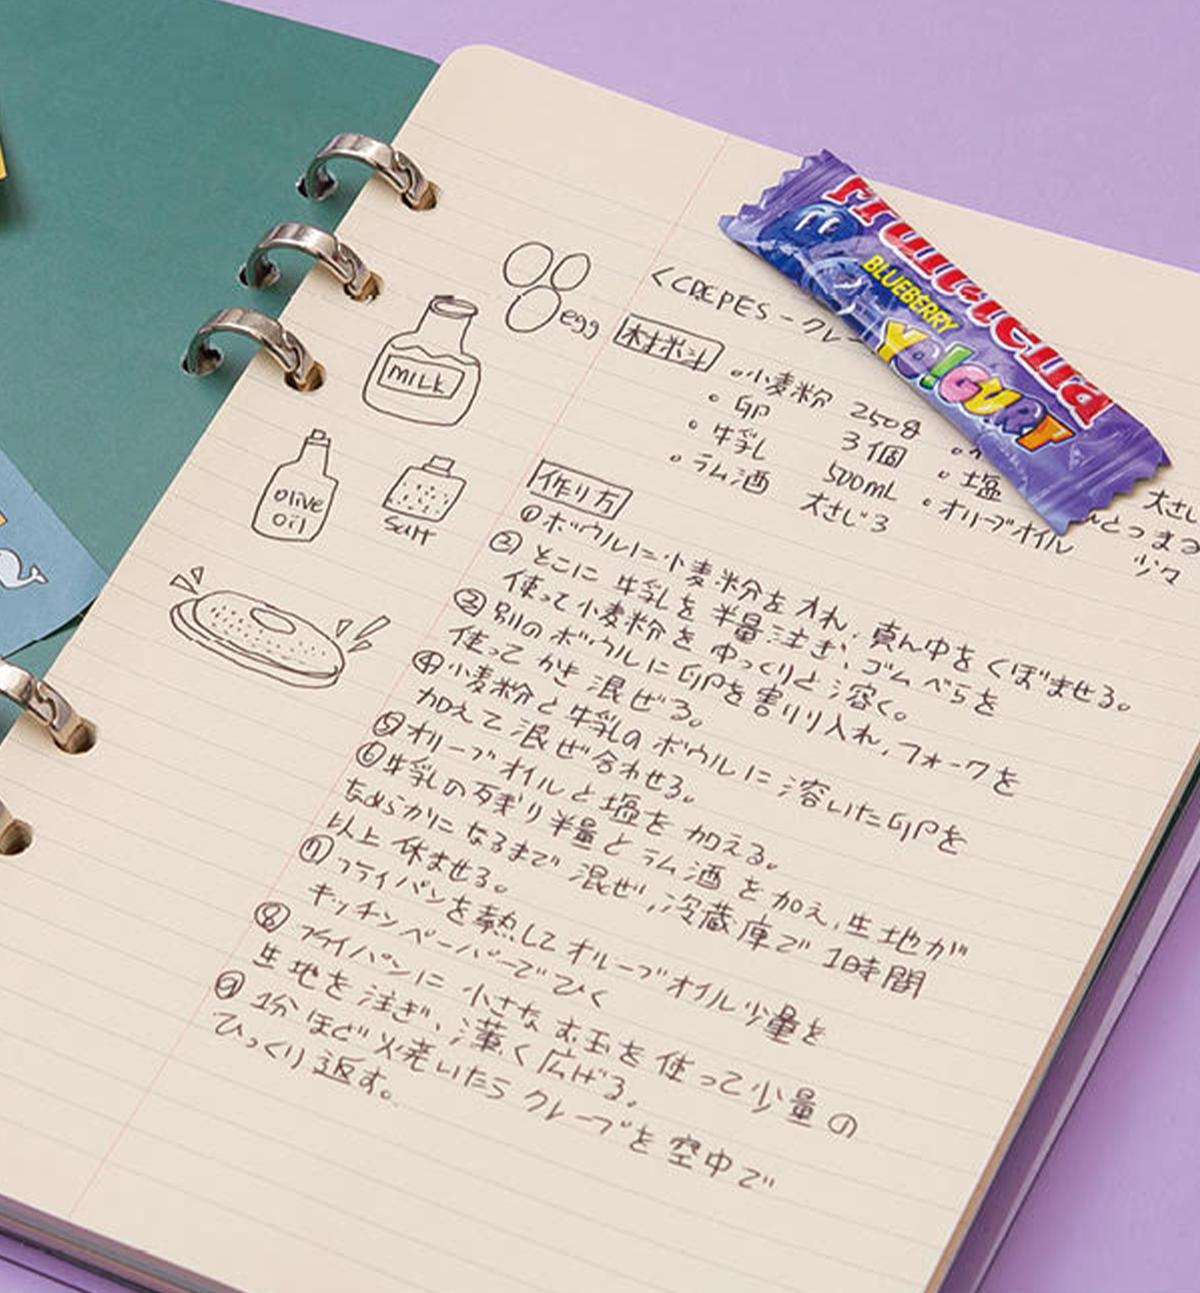 egg
MILK
olive
oil
salt
<CREPES - クレ
材料
・小麦粉 250g
・卵 3個
・牛乳 500mL
・ラム酒 大さじ3
大さじ
・塩 ひとつまみ
・オリーブオイル 少々
作り方
①ボウルに小麦粉を入れ、真ん中をくぼませる。
②そこに牛乳を半量注ぎ、ゴムべらを
使って小麦粉をゆっくりと溶く。
③別のボウルに卵を割り入れ、フォークを
使ってかき混ぜる。
④小麦粉と牛乳のボウルに溶いた卵を
加えて混ぜ合わせる。
⑤オリーブオイルと塩を加える。
⑥牛乳の残り半量とラム酒を加え、生地が
なめらかになるまで混ぜ、冷蔵庫で1時間
以上休ませる。
⑦フライパンを熱してオリーブオイル少量を
キッチンペーパーでひく
⑧フライパンに小さなお玉を使って少量の
生地を注ぎ、薄く広げる。
⑨1分ほど火焼いたらクレープを空中で
ひっくり返す。
Fruittella
BLUEBERRY
YO!GURT